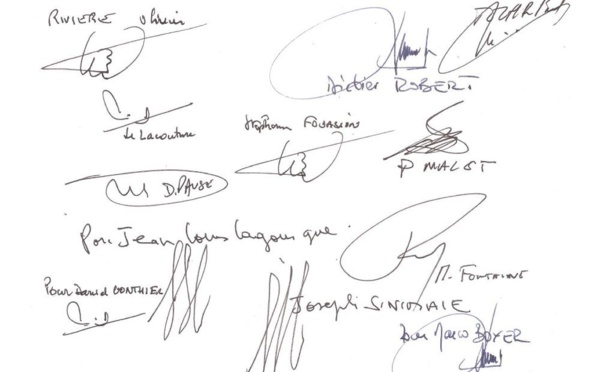 RIVIERE Olivier
Didier ROBERT
Le Lacouture
Stéphane FOUASSIN
P MALET
D. PAUSE
Pour Jean Louis Lagourgue
M. FONTAINE
Pour Daniel GONTHIER
Joseph SINIMALE
Pour Marco BOYER